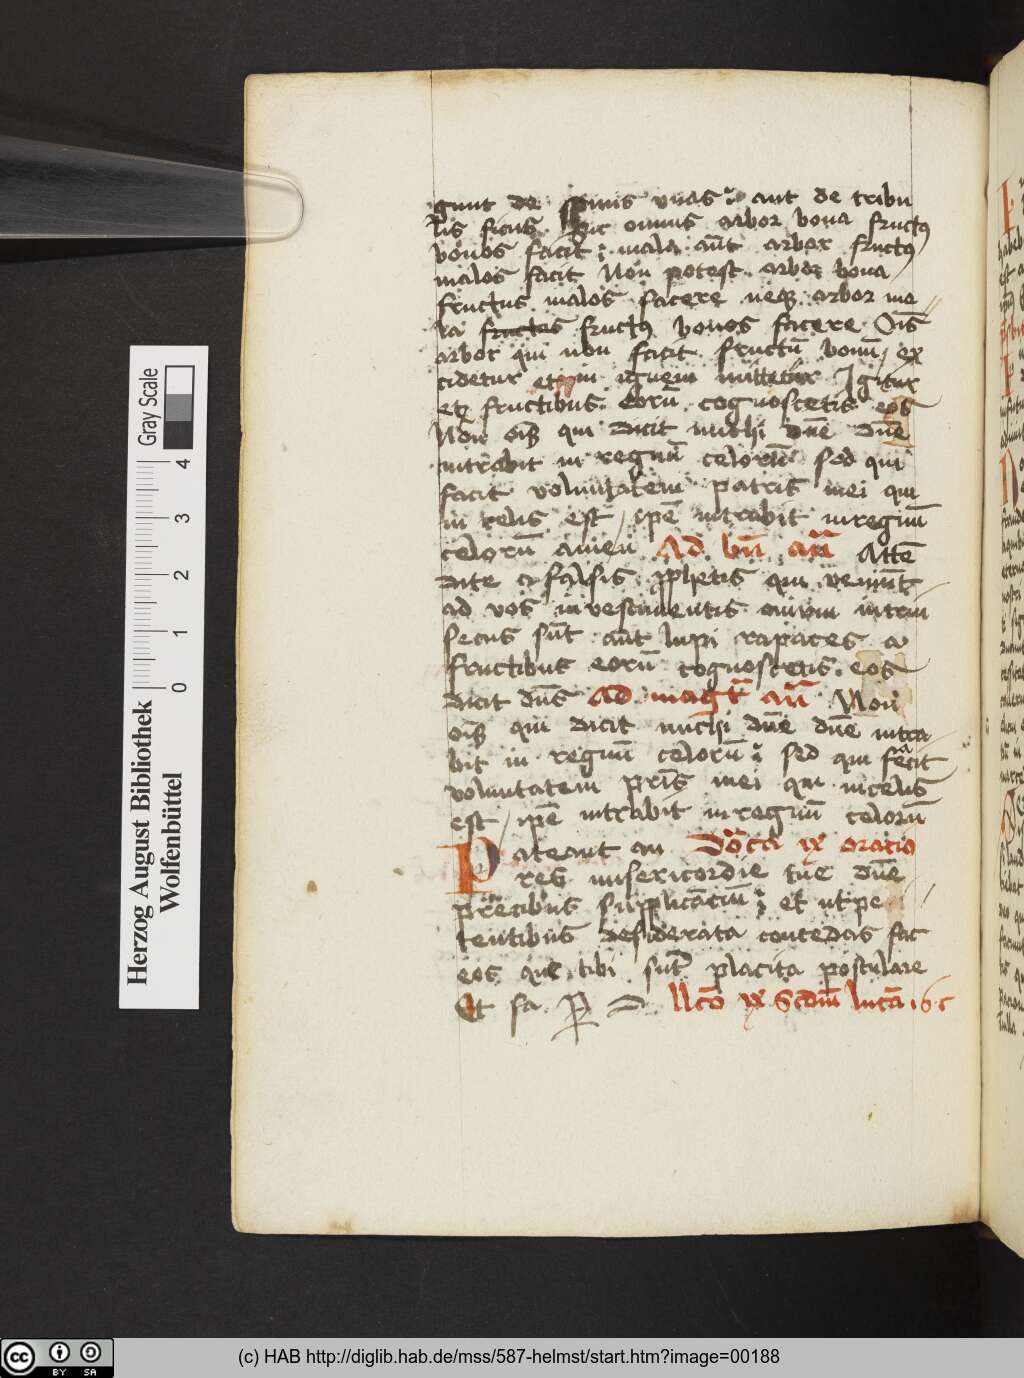 gunt de spinis vuas aut de tribu
lis ficus Sic omnis arbor bona fructꝯ
bonos facit mala aūt arbor fructꝯ
malos facit Non potest arbor bona
fructus malos facere neqꝫ arbor ma
la fructus fructꝯ bonos facere Oīs
arbor qui non facit fructū bonū ex
cidetur et in ignem mittetur Igitur
ex fructibus eorū cognoscetis eos
Non oīs qui dicit michi dn̄e dn̄e
intrabit in regnū celorū sed qui
facit voluntatem patris mei qui
in celis est ipē intrabit in regnū
celorū amen Ad bn̄ an̄ Atten̄
dite a falsis ꝓphetis qui veniūt
ad vos in vestimentis ouium intrin
secus sūt aūt lupi rapaces a
fructibus eorū cognoscetis eos
dicit dn̄s Ad magt̄ an̄ Non
oīs qui dicit michi dn̄e dn̄e intra
bit in regnū celorū sed qui facit
voluntatem pr̄is mei qui in celis
est ipē intrabit in regnū celorū
Pateant au Dōca ix oracio
res misericordie tue dn̄e
precibus supplicanciū et ut pe
tentibus desiderata concedas fac
eos que tibi sūt placita postulare
Et fa P D Llc̄o ix Scdm̄ lucā 16 c
Herzog August Bibliothek
Wolfenbüttel
0 1 2 3 4
Gray Scale
(c) HAB http://diglib.hab.de/mss/587-helmst/start.htm?image=00188
cc BY SA